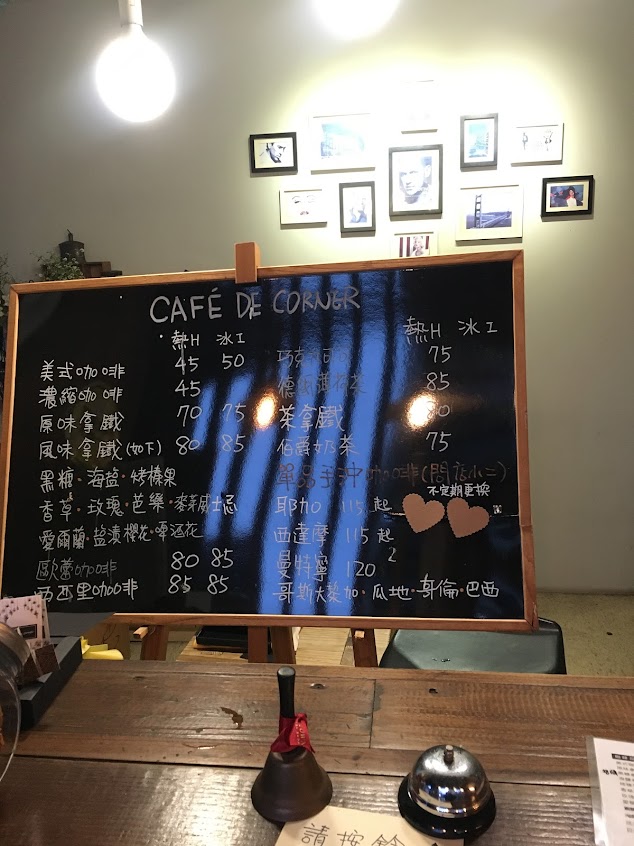 CAFÉ DE CORNER
熱H 冰I
美式咖啡 45 50
濃縮咖啡 45
原味拿鐵 70 75
風味拿鐵(如下) 80 85
黑糖·海鹽·烤榛果
香草·玫瑰·芭樂·麥芽威士忌
愛爾蘭·鹽漬櫻花·啤酒花
歐蕾咖啡 80 85
西西里咖啡 85 85
熱H 冰I
巧克力可可 75
85
茶拿鐵 80
伯爵奶茶 75
單品手沖咖啡(問店小二)
不定期更換
耶加 115起
西達摩 115起
曼特寧 120
哥斯大黎加·瓜地·哥倫·巴西
請按鈴